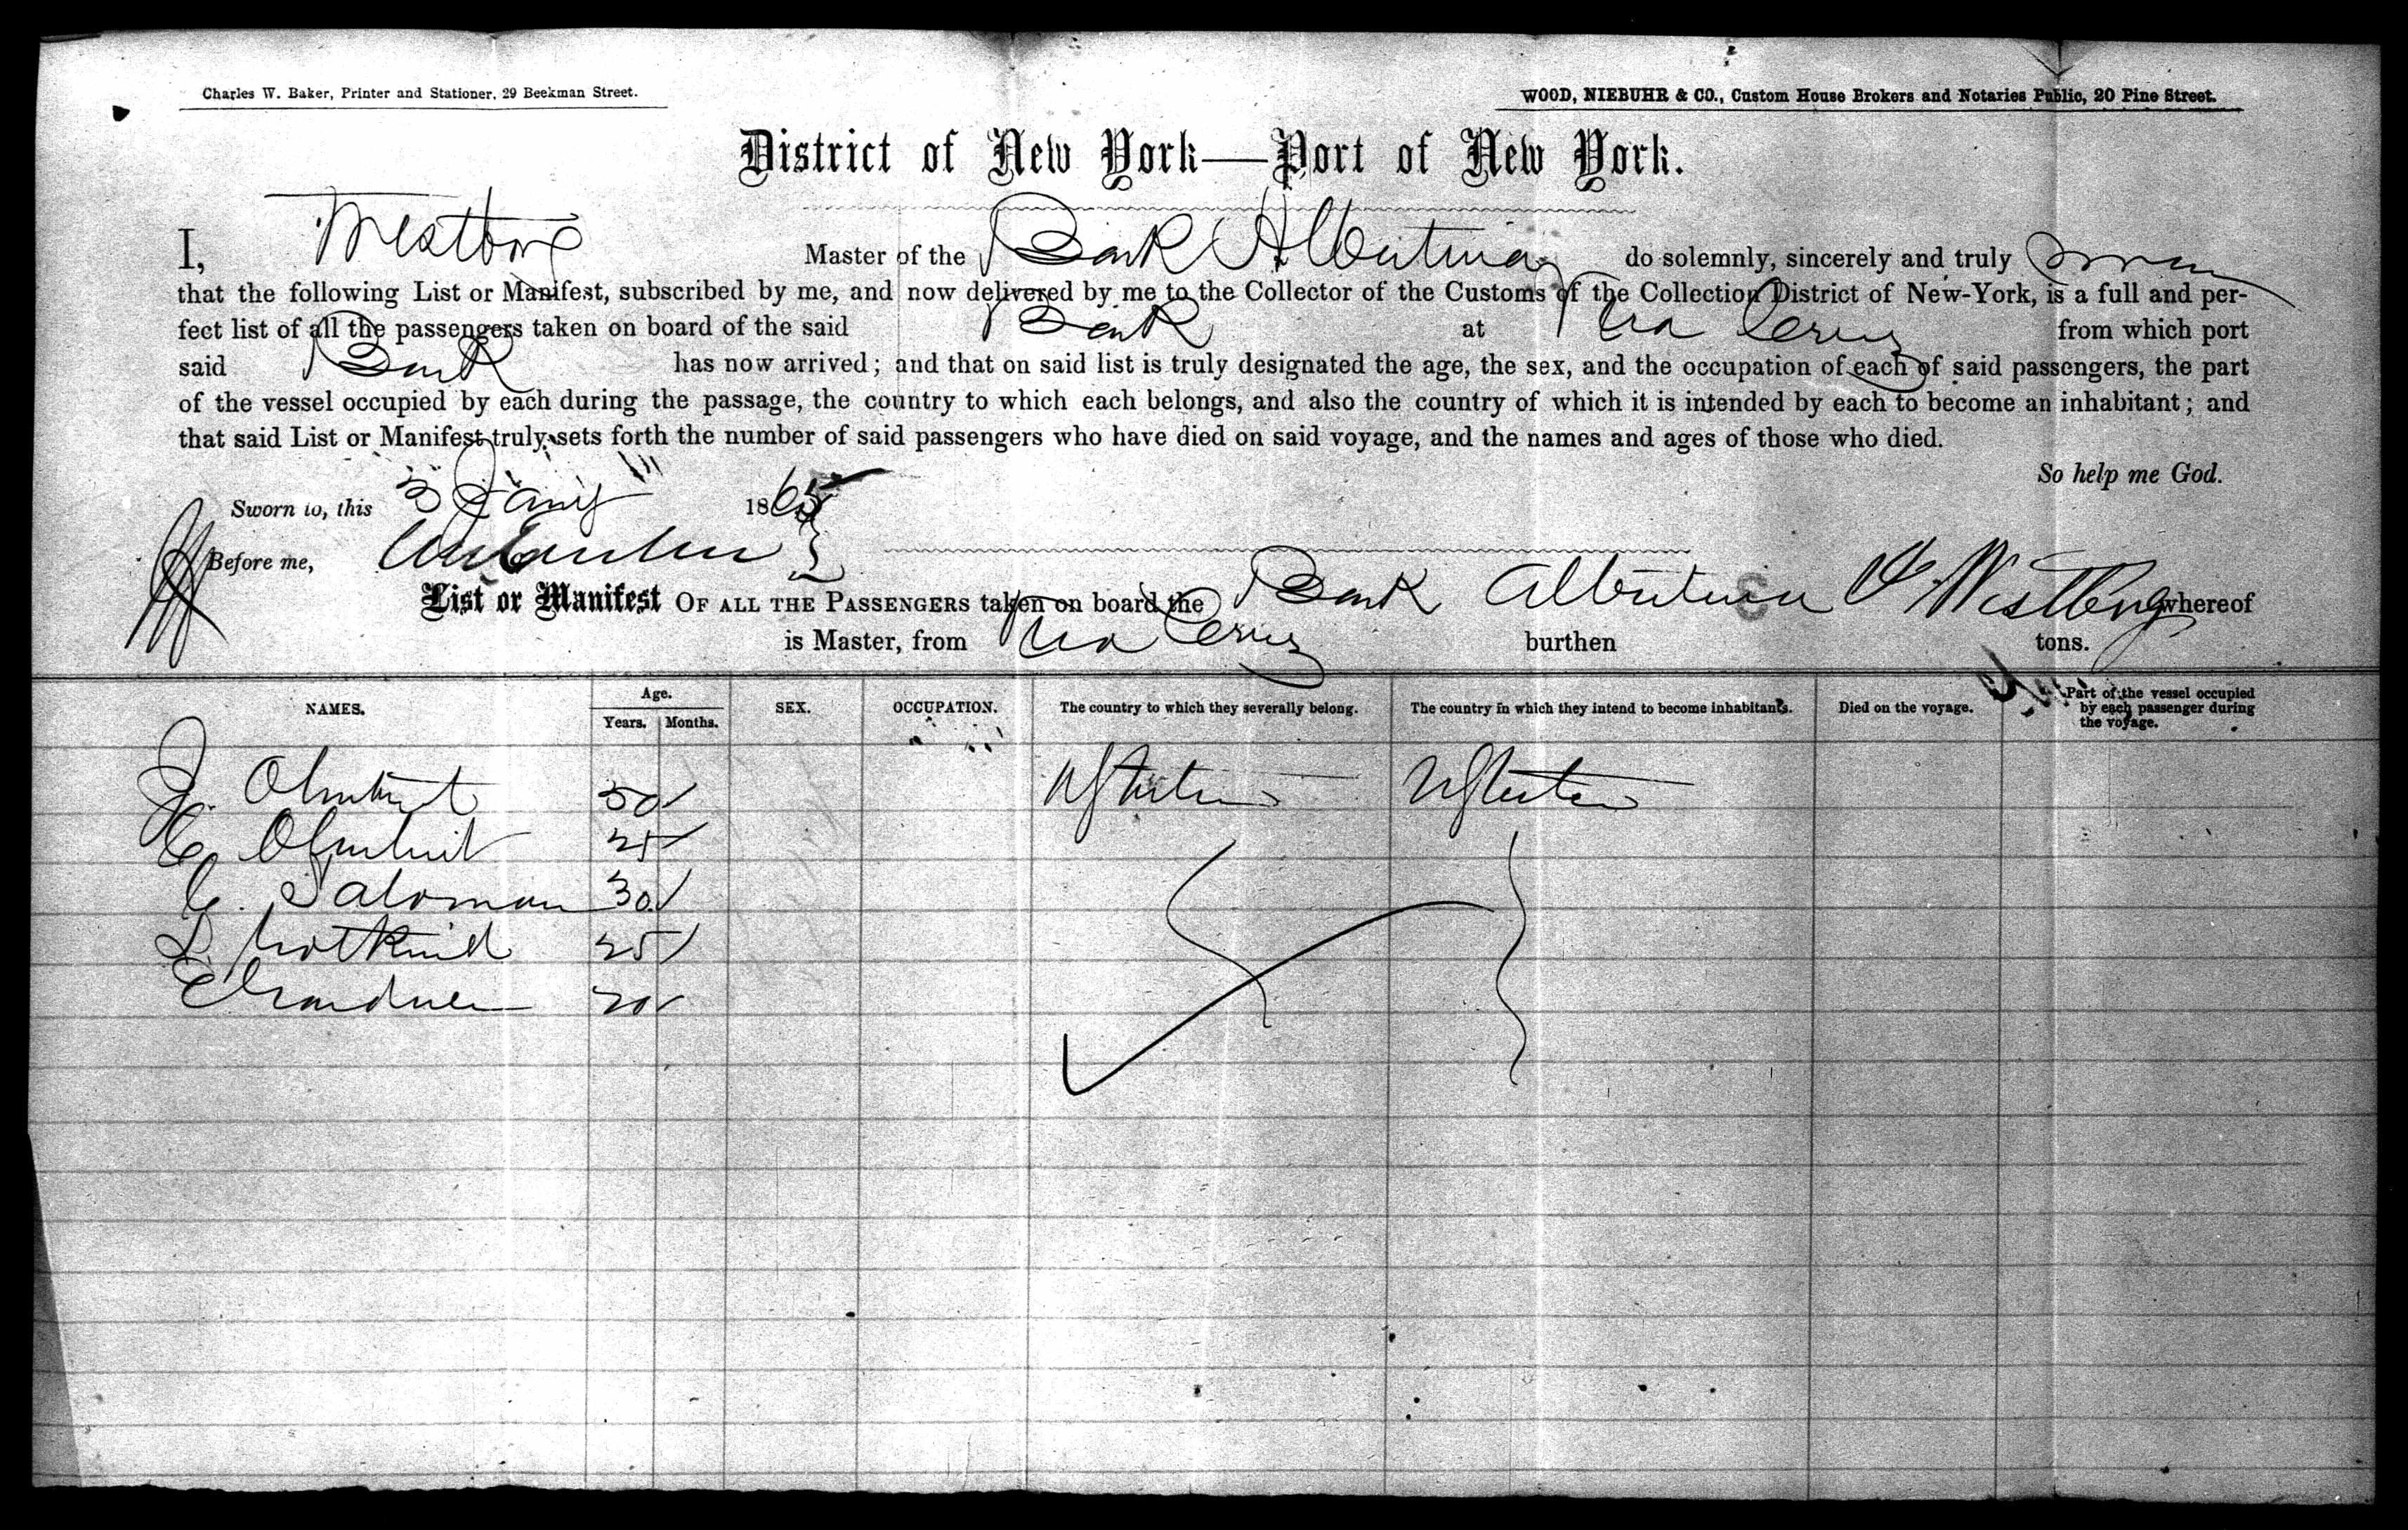 Charles W. Baker, Printer and Stationer, 29 Beekman Street.
WOOD, NIEBUHR & CO., Custom House Brokers and Notaries Public, 20 Pine Street.
District of New York—Port of New York.
I, Westberg Master of the Bark Albertina do solemnly, sincerely and truly swear
that the following List or Manifest, subscribed by me, and now delivered by me to the Collector of the Customs of the Collection District of New-York, is a full and per-
fect list of all the passengers taken on board of the said Bark at Vra Cruz from which port
said Bark has now arrived; and that on said list is truly designated the age, the sex, and the occupation of each of said passengers, the part
of the vessel occupied by each during the passage, the country to which each belongs, and also the country of which it is intended by each to become an inhabitant; and
that said List or Manifest truly sets forth the number of said passengers who have died on said voyage, and the names and ages of those who died.
So help me God.
Sworn to, this 3 Jany 1865
Before me,
List or Manifest OF ALL THE PASSENGERS taken on board the Bark Albertina Westberg whereof
is Master, from Vra Cruz burthen tons.
NAMES. Age. Years. Months. SEX. OCCUPATION. The country to which they severally belong. The country in which they intend to become inhabitants. Died on the voyage. Part of the vessel occupied by each passenger during the voyage.
J. 50 U States U States
C. 25
C. Saloman 30
L. 25
E Gardner 20